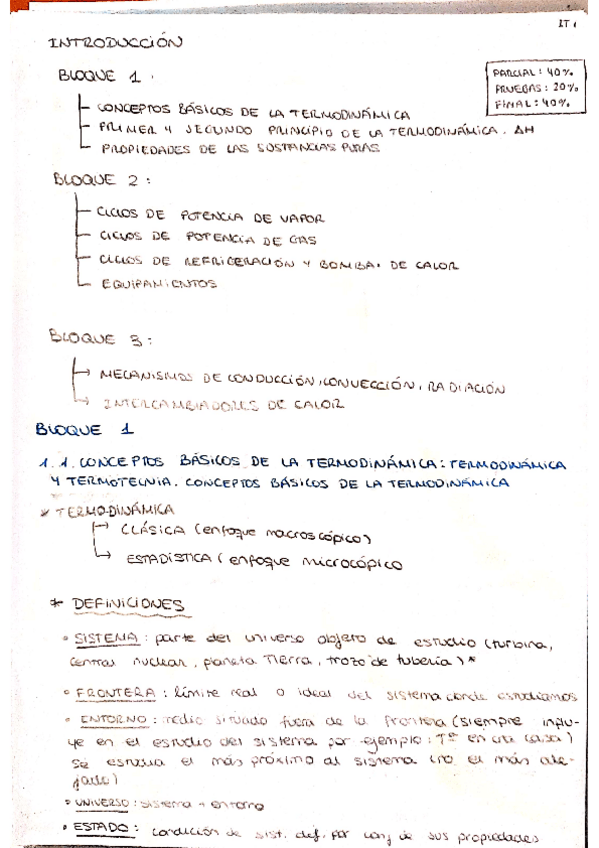 IT 1
INTRODUCCIÓN
BLOQUE 1.
PARCIAL: 40%
PRUEBAS: 20%
FINAL: 40%
CONCEPTOS BÁSICOS DE LA TERMODINÁMICA
PRIMER Y SEGUNDO PRINCIPIO DE LA TERMODINÁMICA. ΔH
PROPIEDADES DE LAS SUSTANCIAS PURAS
BLOQUE 2:
CICLOS DE POTENCIA DE VAPOR
CICLOS DE POTENCIA DE GAS
CICLOS DE REFRIGERACIÓN Y BOMBA. DE CALOR
EQUIPAMIENTOS
BLOQUE 3:
MECANISMOS DE CONDUCCIÓN, CONVECCIÓN, RADIACIÓN
INTERCAMBIADORES DE CALOR
BLOQUE 1
1.1. CONCEPTOS BÁSICOS DE LA TERMODINÁMICA: TERMODINÁMICA
Y TERMOTECNIA. CONCEPTOS BÁSICOS DE LA TERMODINÁMICA
* TERMODINÁMICA
CLÁSICA (enfoque macroscópico)
ESTADÍSTICA (enfoque microcópico
* DEFINICIONES
• SISTEMA: parte del universo objeto de estudio (turbina,
central nuclear, planeta Tierra, trozo de tubería)*
• FRONTERA: límite real o ideal del sistema donde estudiamos
• ENTORNO: medio situado fuera de la frontera (siempre influ-
ye en el estudio del sistema por ejemplo: Tª en una casa)
Se estudia el más próximo al sistema (no el más ale-
jado)
• UNIVERSO: sistema + entorno
• ESTADO: condición de sist. def. por conj de sus propiedades